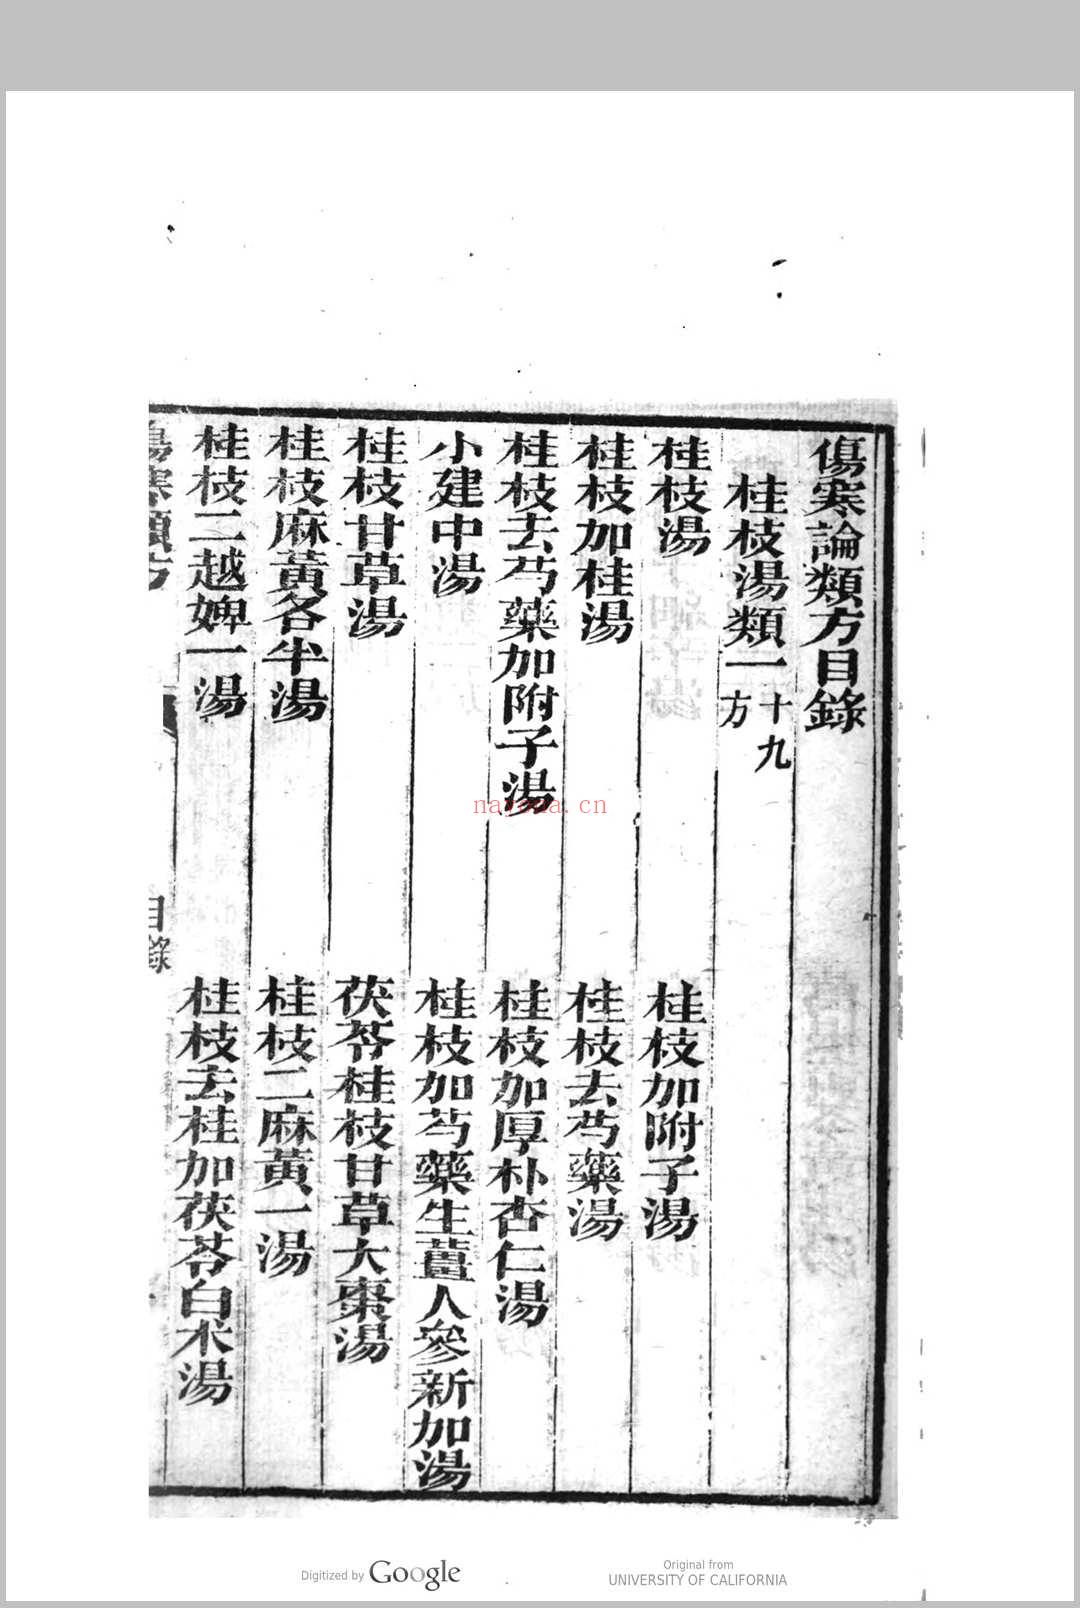 傷寒論類方目錄
桂枝湯類一十九方
桂枝湯
桂枝加附子湯
桂枝加桂湯
桂枝去芍藥湯
桂枝去芍藥加附子湯
桂枝加厚朴杏仁湯
小建中湯
桂枝加芍藥生薑人參新加湯
桂枝甘草湯
茯苓桂枝甘草大棗湯
桂枝麻黃各半湯
桂枝二麻黃一湯
桂枝二越婢一湯
桂枝去桂加茯苓白朮湯
傷寒類方
目錄
nayona.cn
Digitized by Google
Original from
UNIVERSITY OF CALIFORNIA